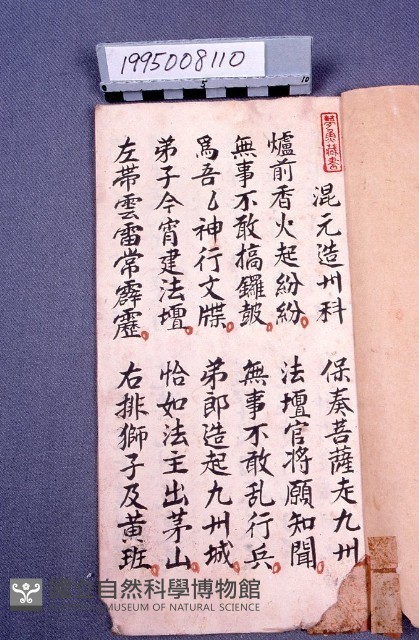 1995008110
5 10
藏書
混元造州科 保奏菩薩走九州
爐前香火起紛紛 法壇官將願知聞
無事不敢搞鑼皷 無事不敢乱行兵
爲吾乚神行文牒 弟郎造起九州城
弟子今宵建法壇 恰如法主出茅山
左帶雲雷常霹靂 右排獅子及黃班
國立自然科學博物館
MUSEUM OF NATURAL SCIENCE